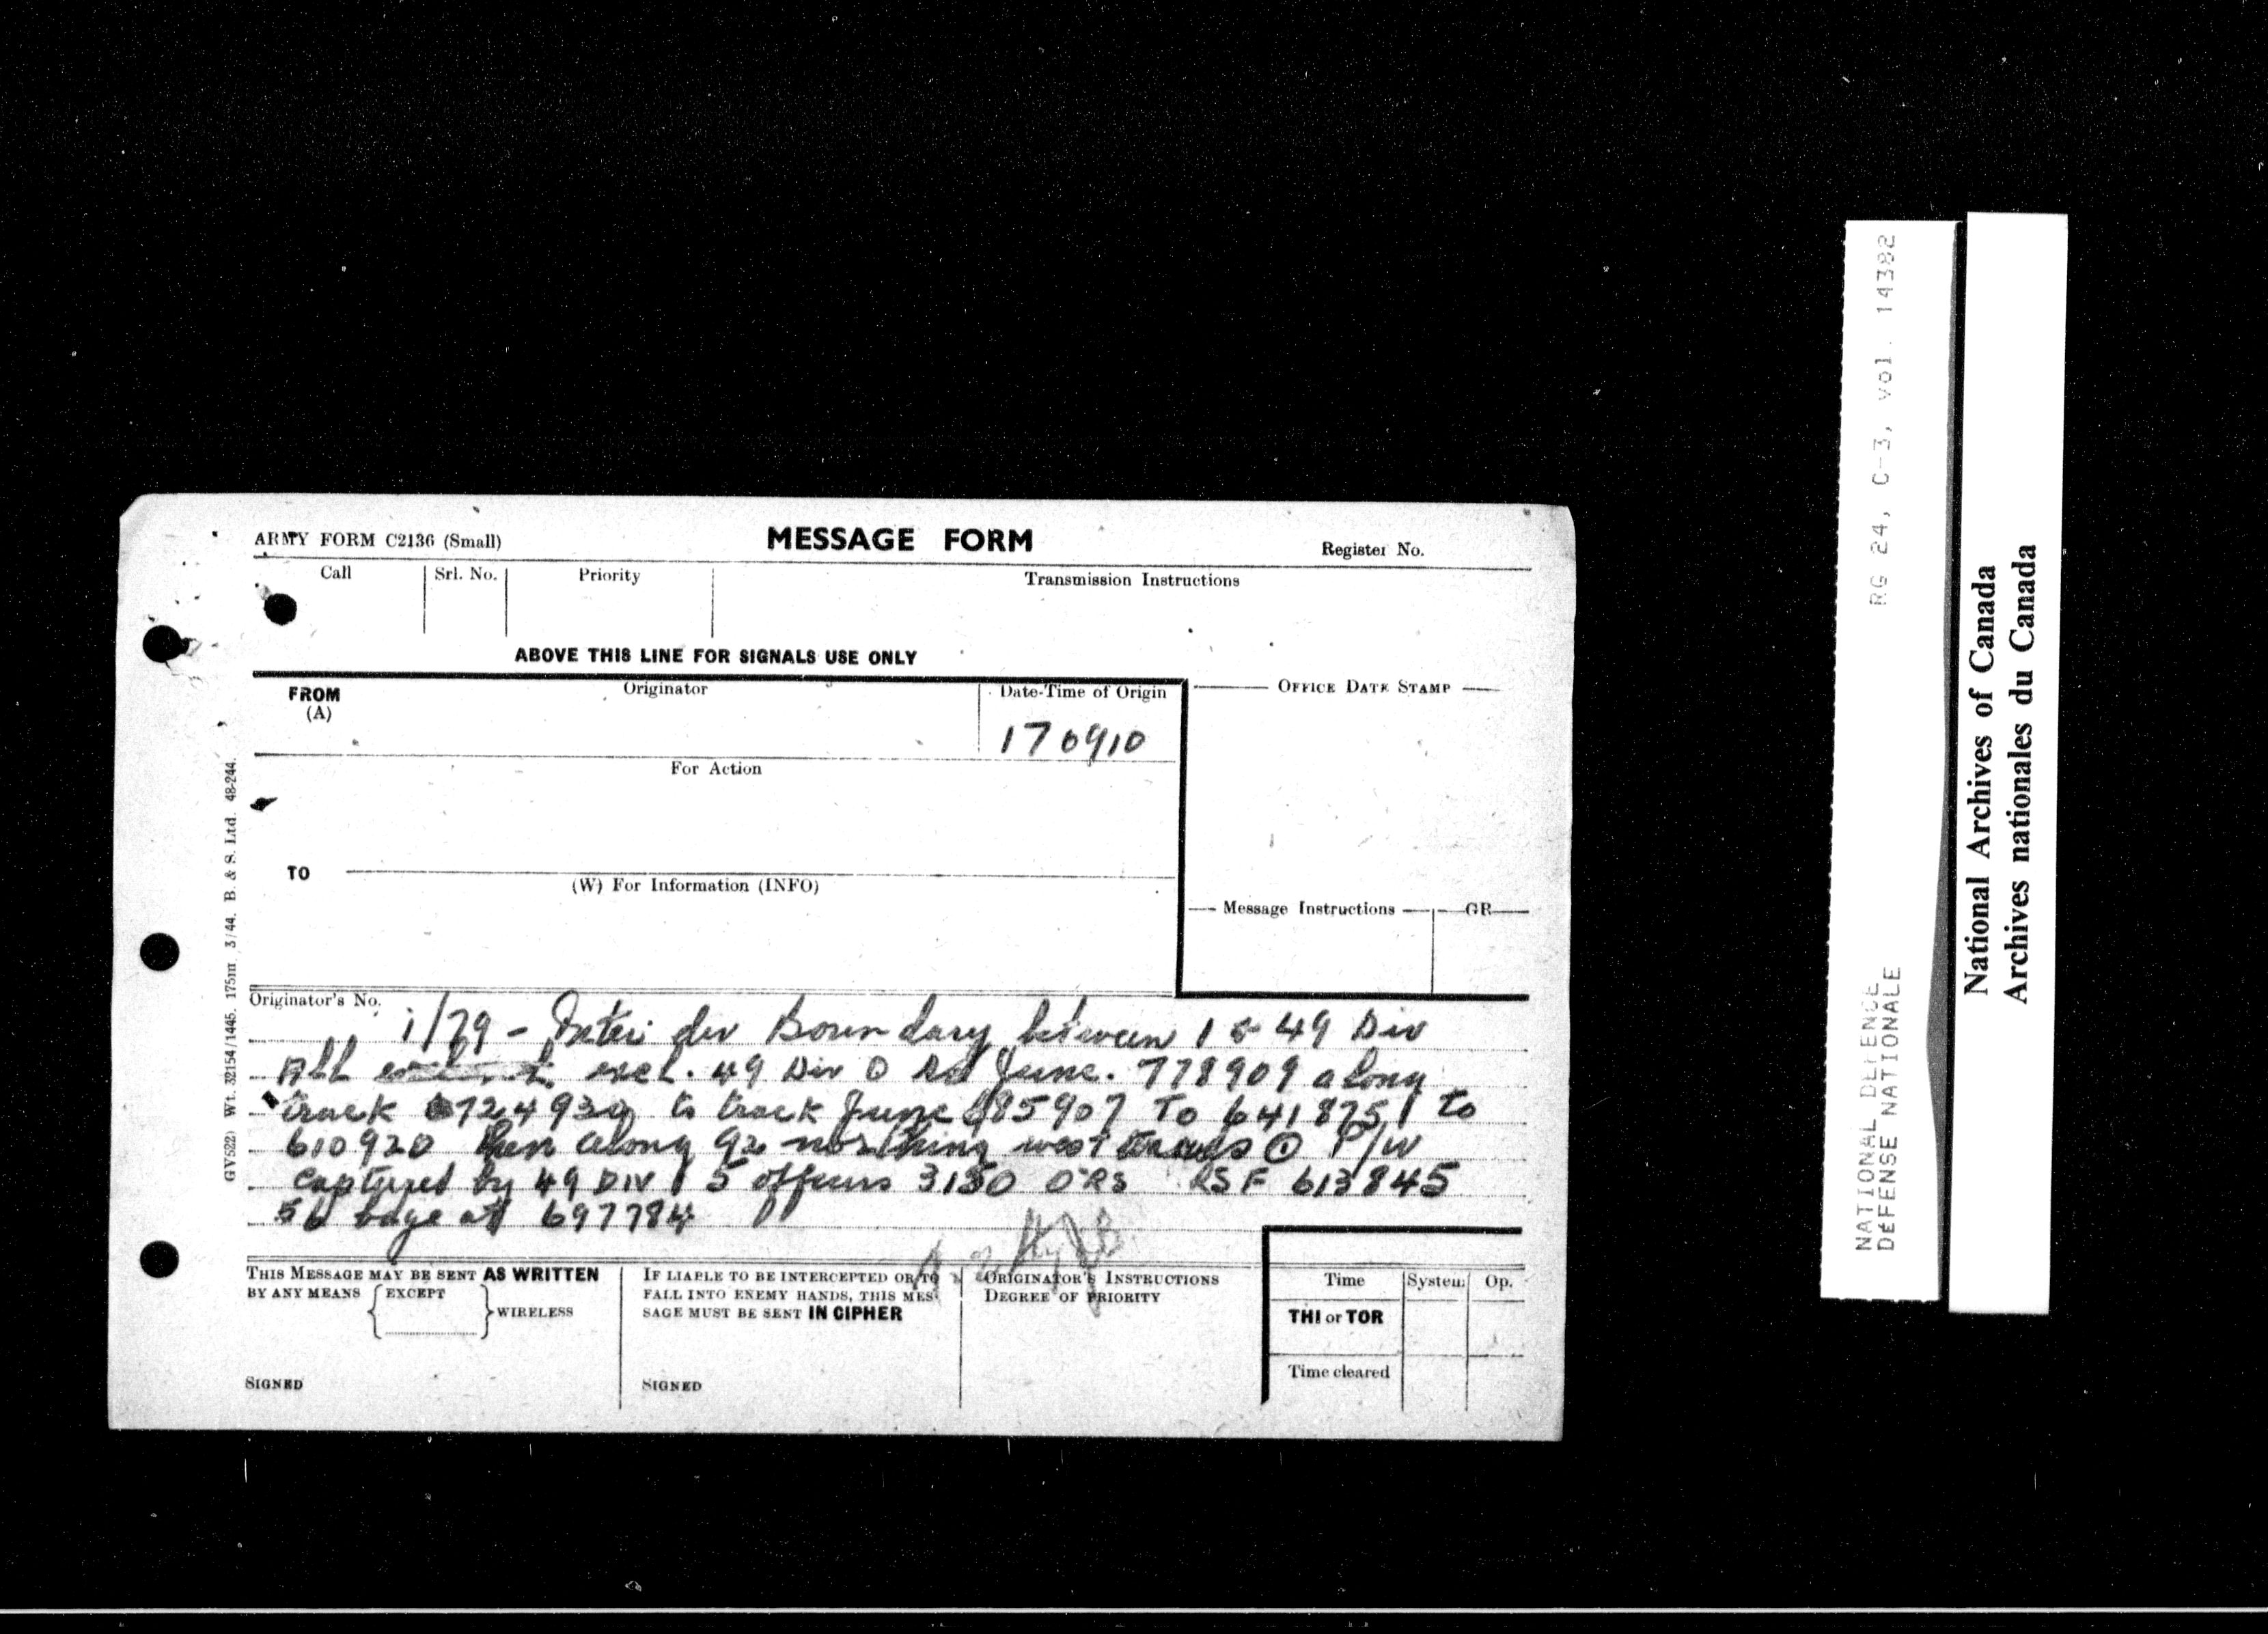 ARMY FORM C2136 (Small)
MESSAGE FORM
Register No.
Call
Srl. No.
Priority
Transmission Instructions
ABOVE THIS LINE FOR SIGNALS USE ONLY
FROM
(A)
Originator
Date-Time of Origin
170910
OFFICE DATE STAMP
For Action
TO
(W) For Information (INFO)
Message Instructions
GR
Originator's No.
i/79 - Inter div Boundary between 1 & 49 Div
All excl. 49 Div ⊙ Rd Junc. 778909 along
track 724930 to track Junc 685907 To 641875 to
610920 then along 92 northing west ⊙ P/W
captured by 49 DIV 5 officers 3130 ORs RSF 613845
56 bage at 697784
THIS MESSAGE MAY BE SENT AS WRITTEN
BY ANY MEANS EXCEPT WIRELESS
SIGNED
IF LIABLE TO BE INTERCEPTED OR TO
FALL INTO ENEMY HANDS, THIS MES-
SAGE MUST BE SENT IN CIPHER
SIGNED
ORIGINATOR'S INSTRUCTIONS
DEGREE OF PRIORITY
Time
System
Op.
THI or TOR
Time cleared
GV522) Wt. 32154/1445. 175m 3/44. B. & S. Ltd. 48-244.
NATIONAL DEFENCE RG 24, C-3, vol. 14382
DÉFENSE NATIONALE
National Archives of Canada
Archives nationales du Canada